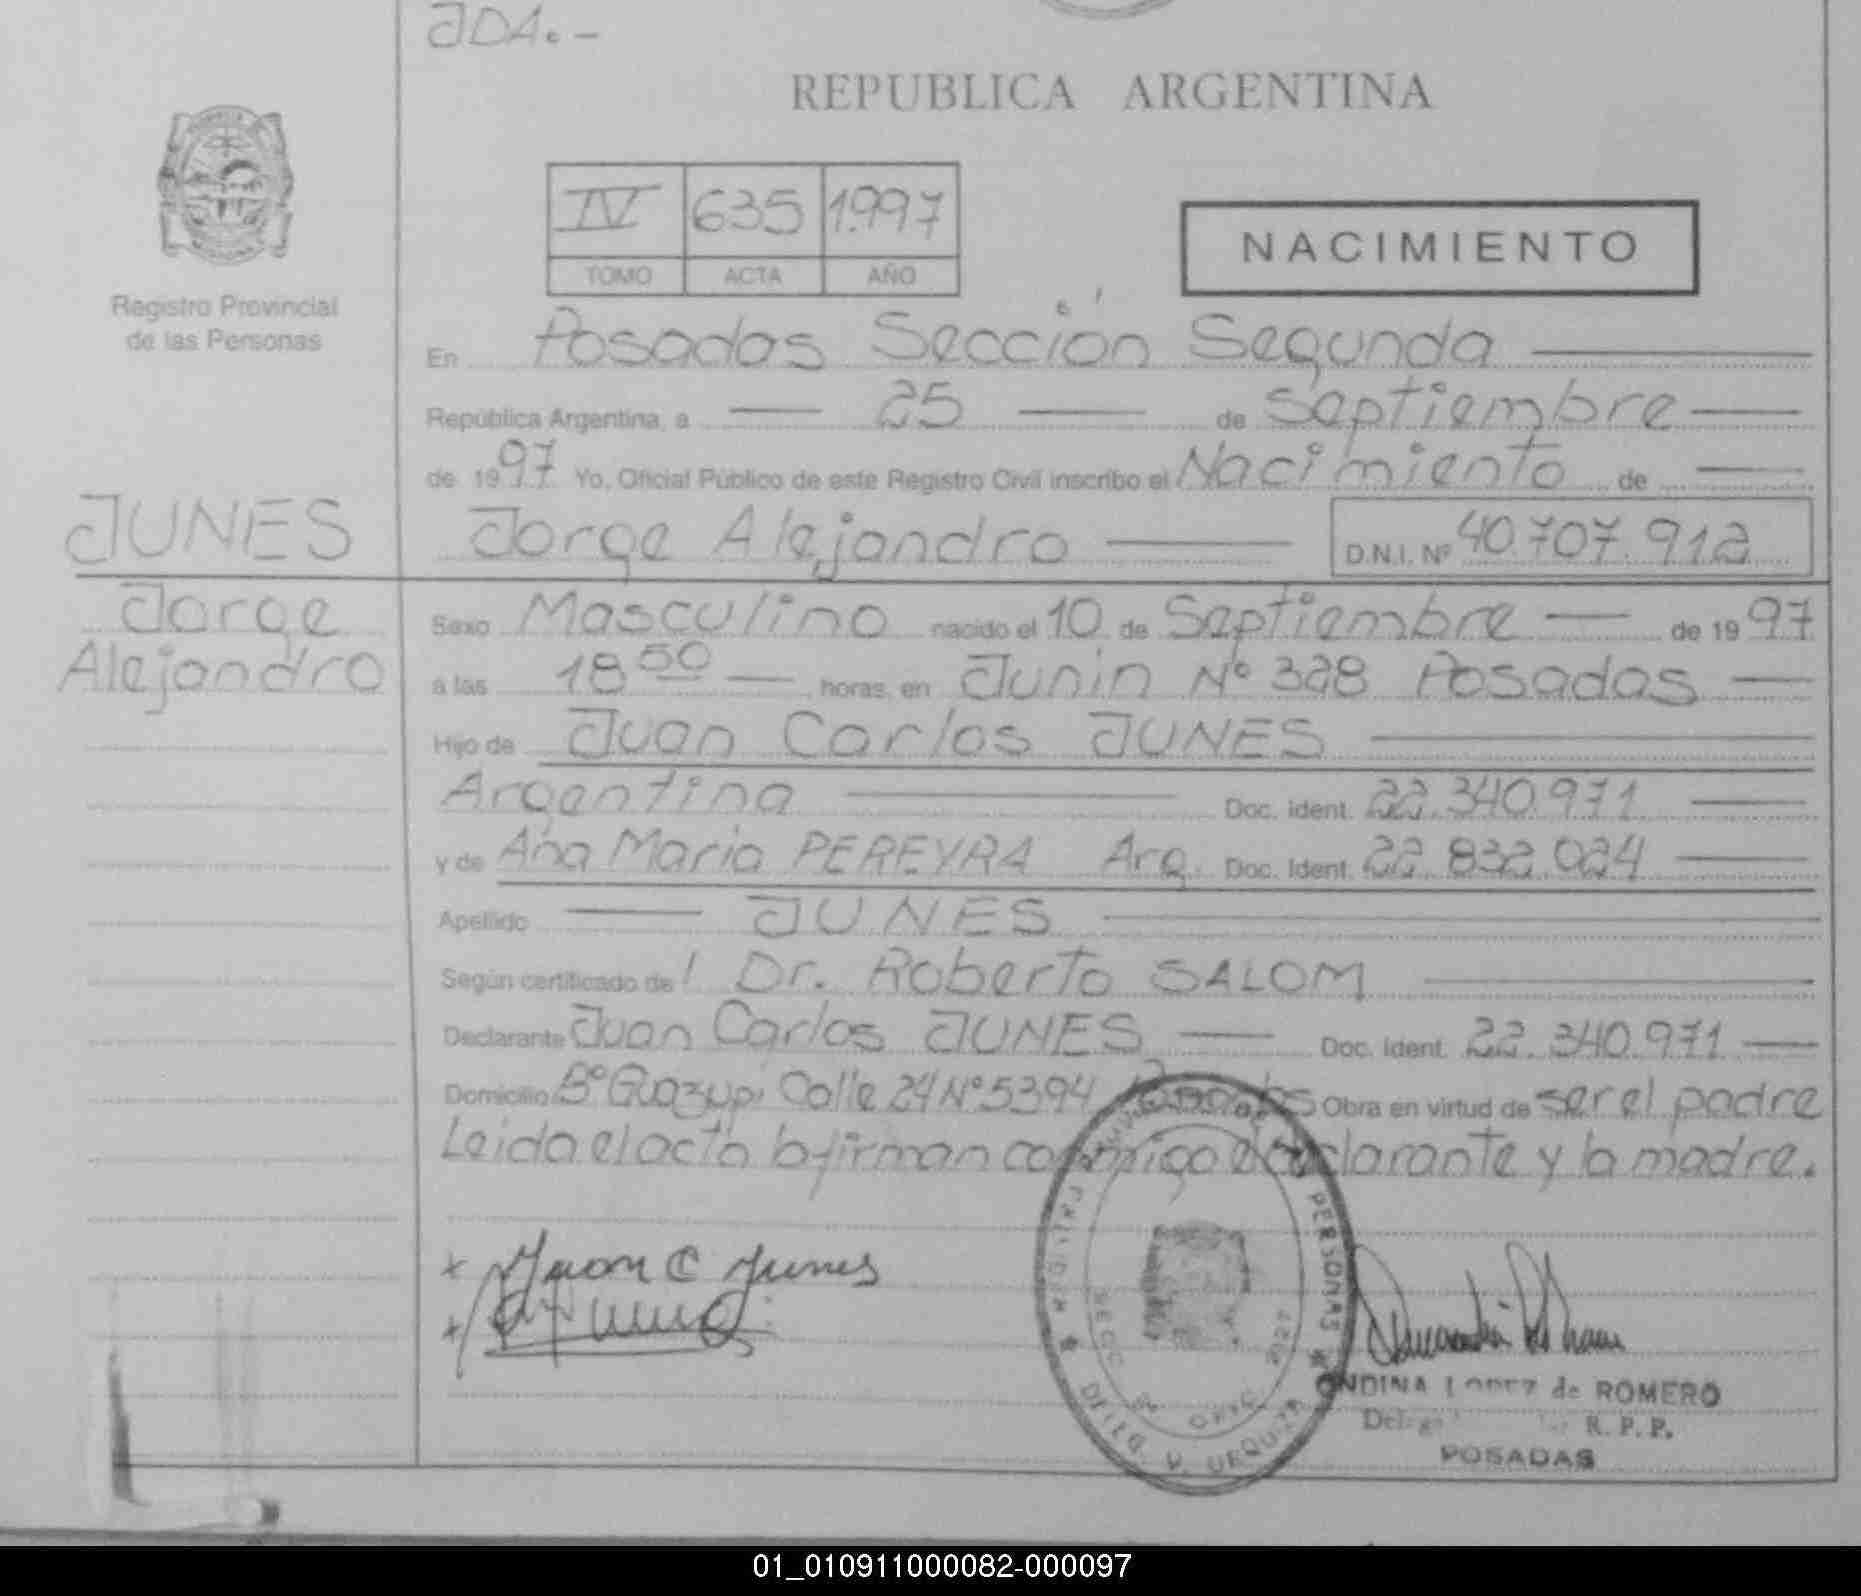 JDA.-
REPUBLICA ARGENTINA
IV 635 1.997
TOMO ACTA AÑO
NACIMIENTO
Registro Provincial
de las Personas
En Posadas Sección Segunda
República Argentina, a 25 de Septiembre
de 1997 Yo, Oficial Público de este Registro Civil inscribo el Nacimiento de
JUNES
Jorge Alejandro D.N.I. Nº 40.707.912
Jorge
Alejandro
Sexo Masculino nacido el 10 de Septiembre de 1997
a las 18 50 horas, en Junin Nº 328 Posadas
Hijo de Juan Carlos JUNES
Argentina Doc. ident. 22.340.971
y de Ana Maria PEREYRA Arg. Doc. Ident. 22.832.024
Apellido JUNES
Según certificado de Dr. Roberto SALOM
Declarante Juan Carlos JUNES Doc. Ident. 22.340.971
Domicilio Bº Guazupi Calle 24 Nº 5394 Posadas Obra en virtud de ser el padre
Leida el acta la firman conmigo el declarante y la madre.
Juan C Junes
PERSONAS
DELEG. V. URQUIZA
ONDINA LOPEZ de ROMERO
R. P. P.
POSADAS
01_010911000082-000097